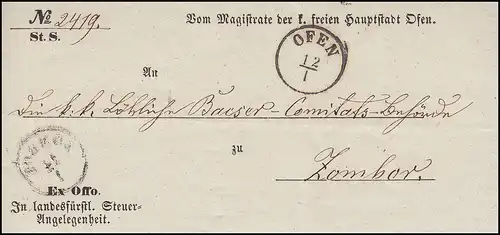 № 2419.
St. S.
Vom Magistrate der k. freien Hauptstadt Ofen.
OFEN
12/1
An
Die k. k. Löbliche Bacser-Comitats-Behörde
zu
Zombor.
Ex Offo.
In landesfürstl. Steuer-
Angelegenheit.